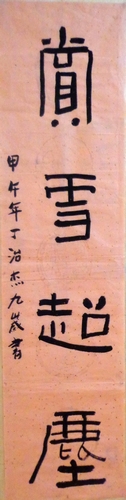 賞雪超塵
甲午年丁治杰九歲書